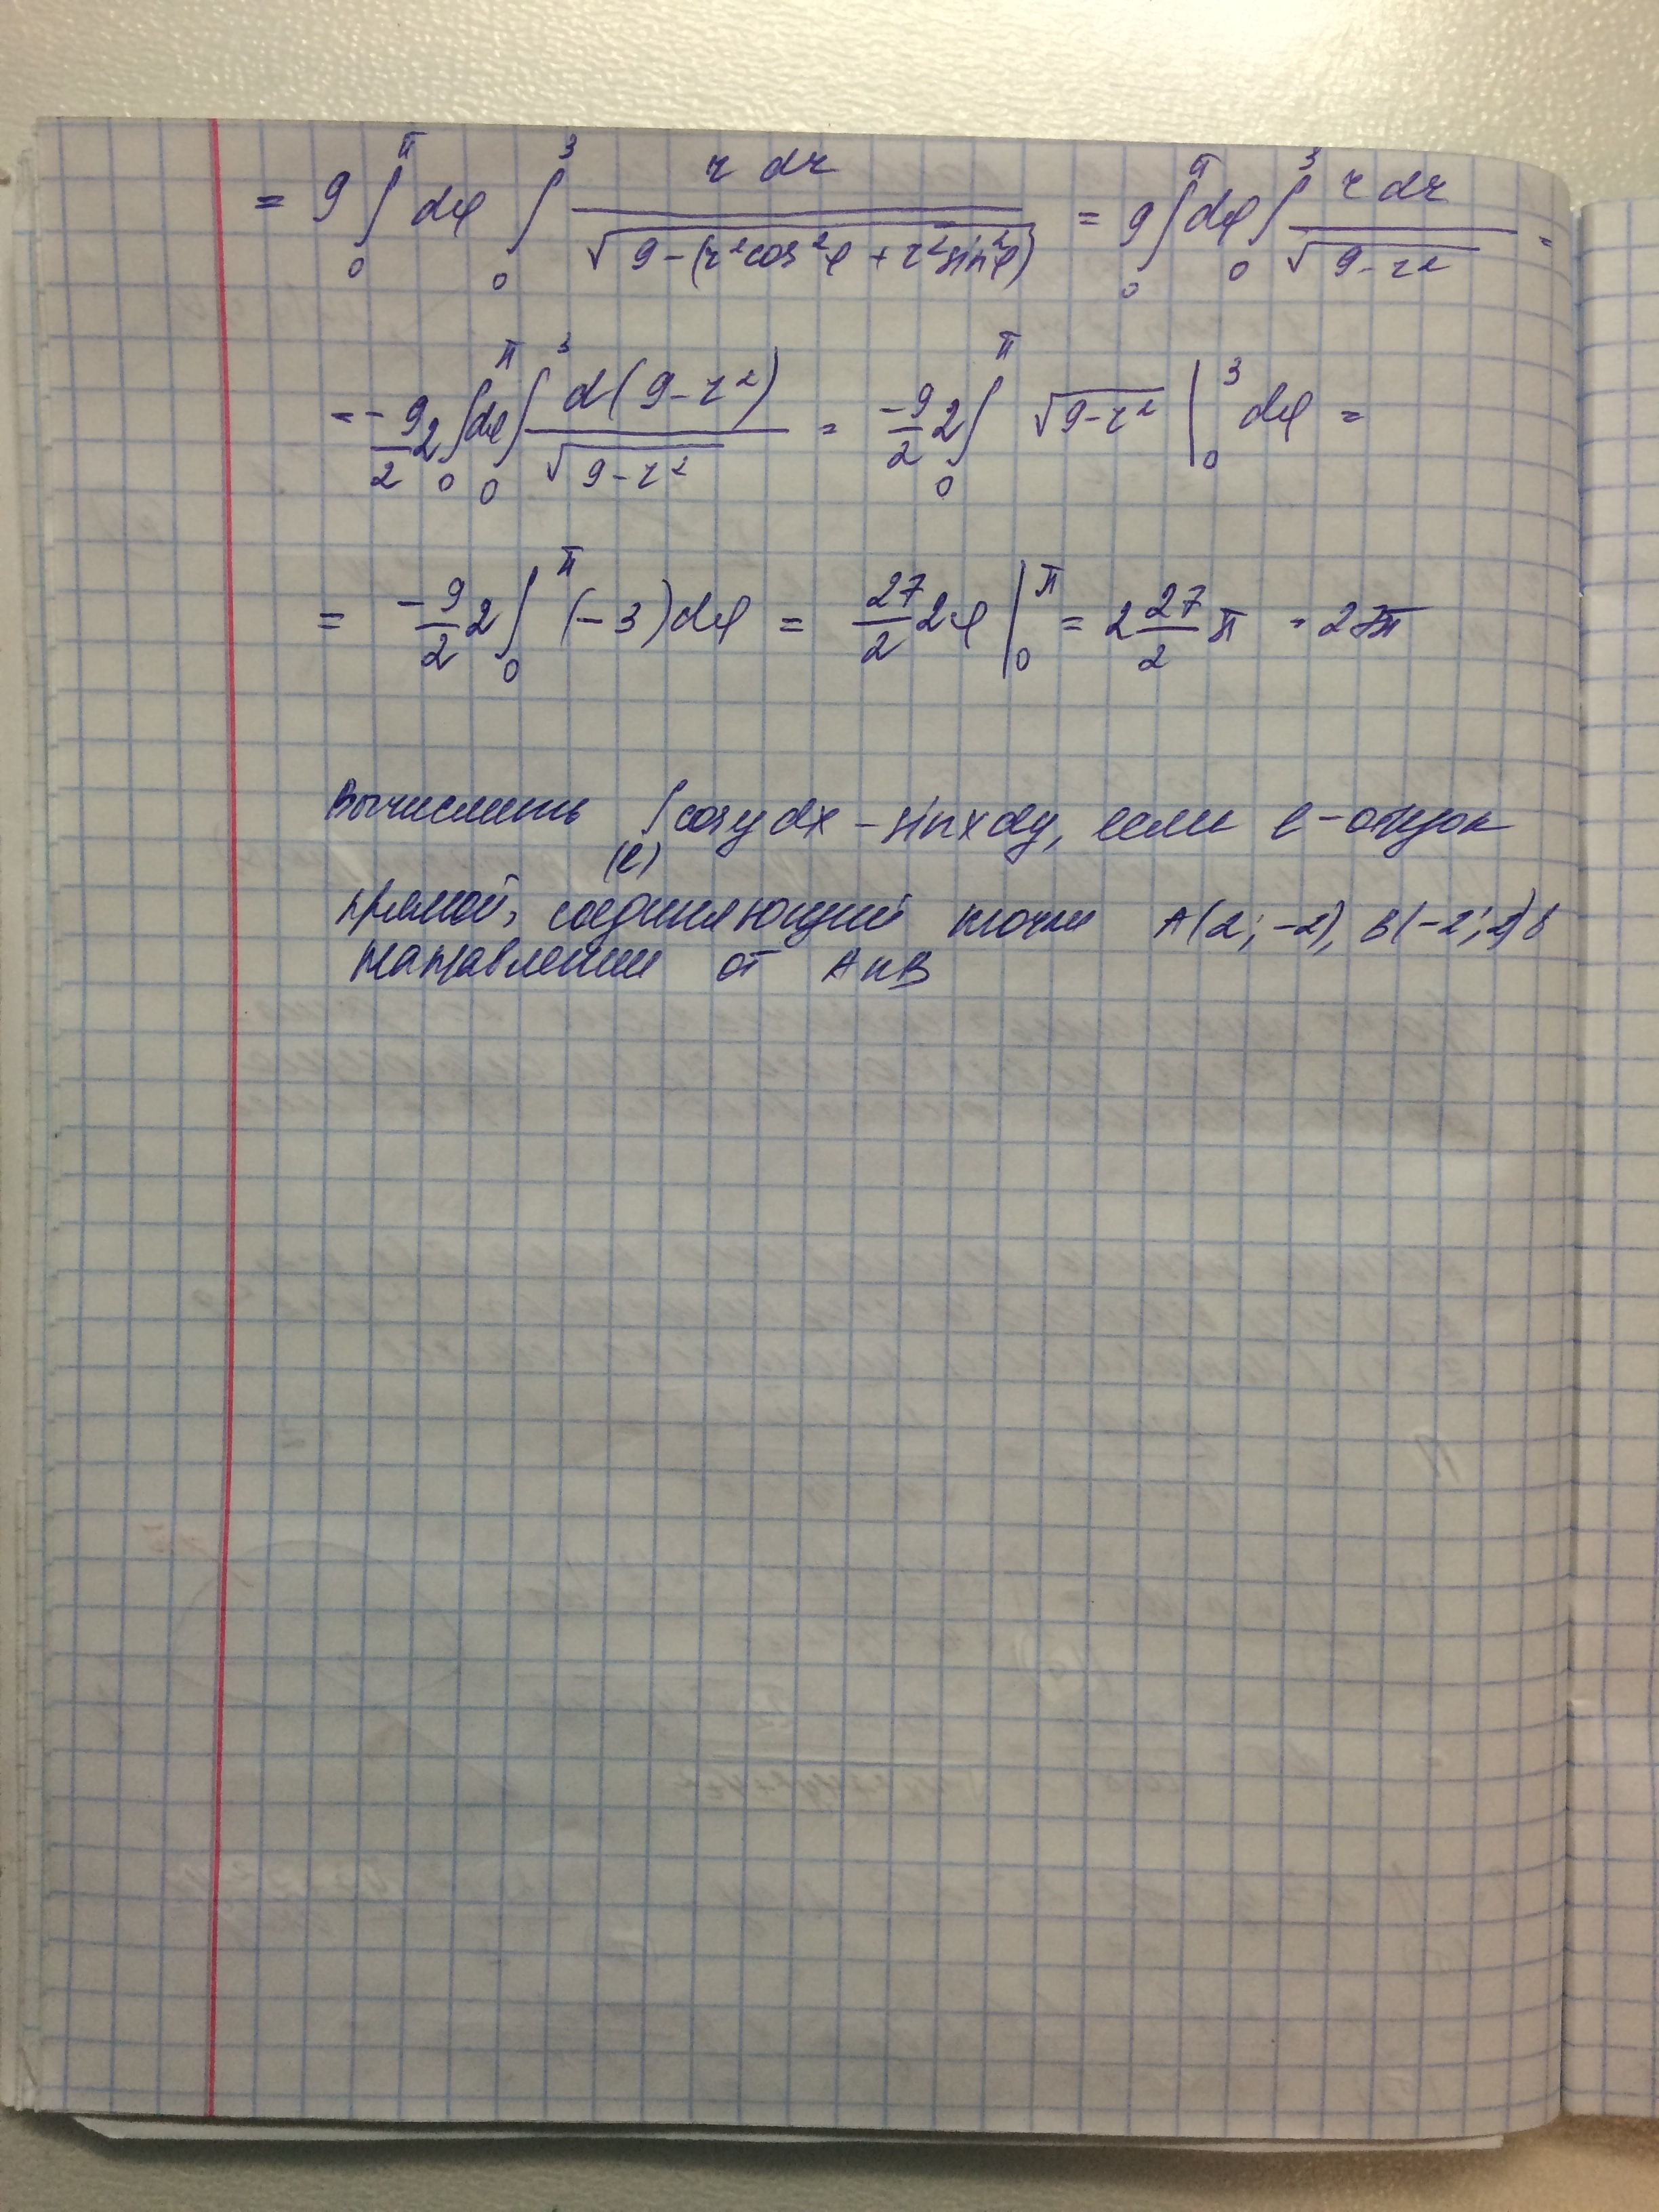 = 9 ∫₀^π dφ ∫₀³ r dr / √(9-(r²cos²φ + r²sin²φ)) = 9 ∫₀^π dφ ∫₀³ r dr / √(9-r²) =
= -9/2 2 ∫₀^π dφ ∫₀³ d(9-r²) / √(9-r²) = -9/2 2 ∫₀^π √(9-r²) |₀³ dφ =
= -9/2 2 ∫₀^π (-3)dφ = 27/2 2φ |₀^π = 2 27/2 π = 27π
Вычислить ∫(l) cosy dx - sinx dy, если l - отрезок
прямой, соединяющий точки A(2; -2), B(-2; 2) в
направлении от A к B